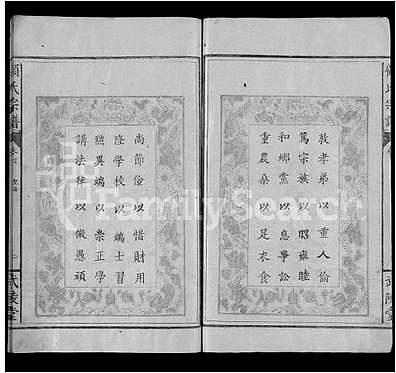 敦孝弟以重人倫
篤宗族以昭雍睦
和鄉黨以息爭訟
重農桑以足衣食
尚節儉以惜財用
隆學校以端士習
黜異端以崇正學
講法律以儆愚頑
氏宗譜
武陵堂
FamilySearch